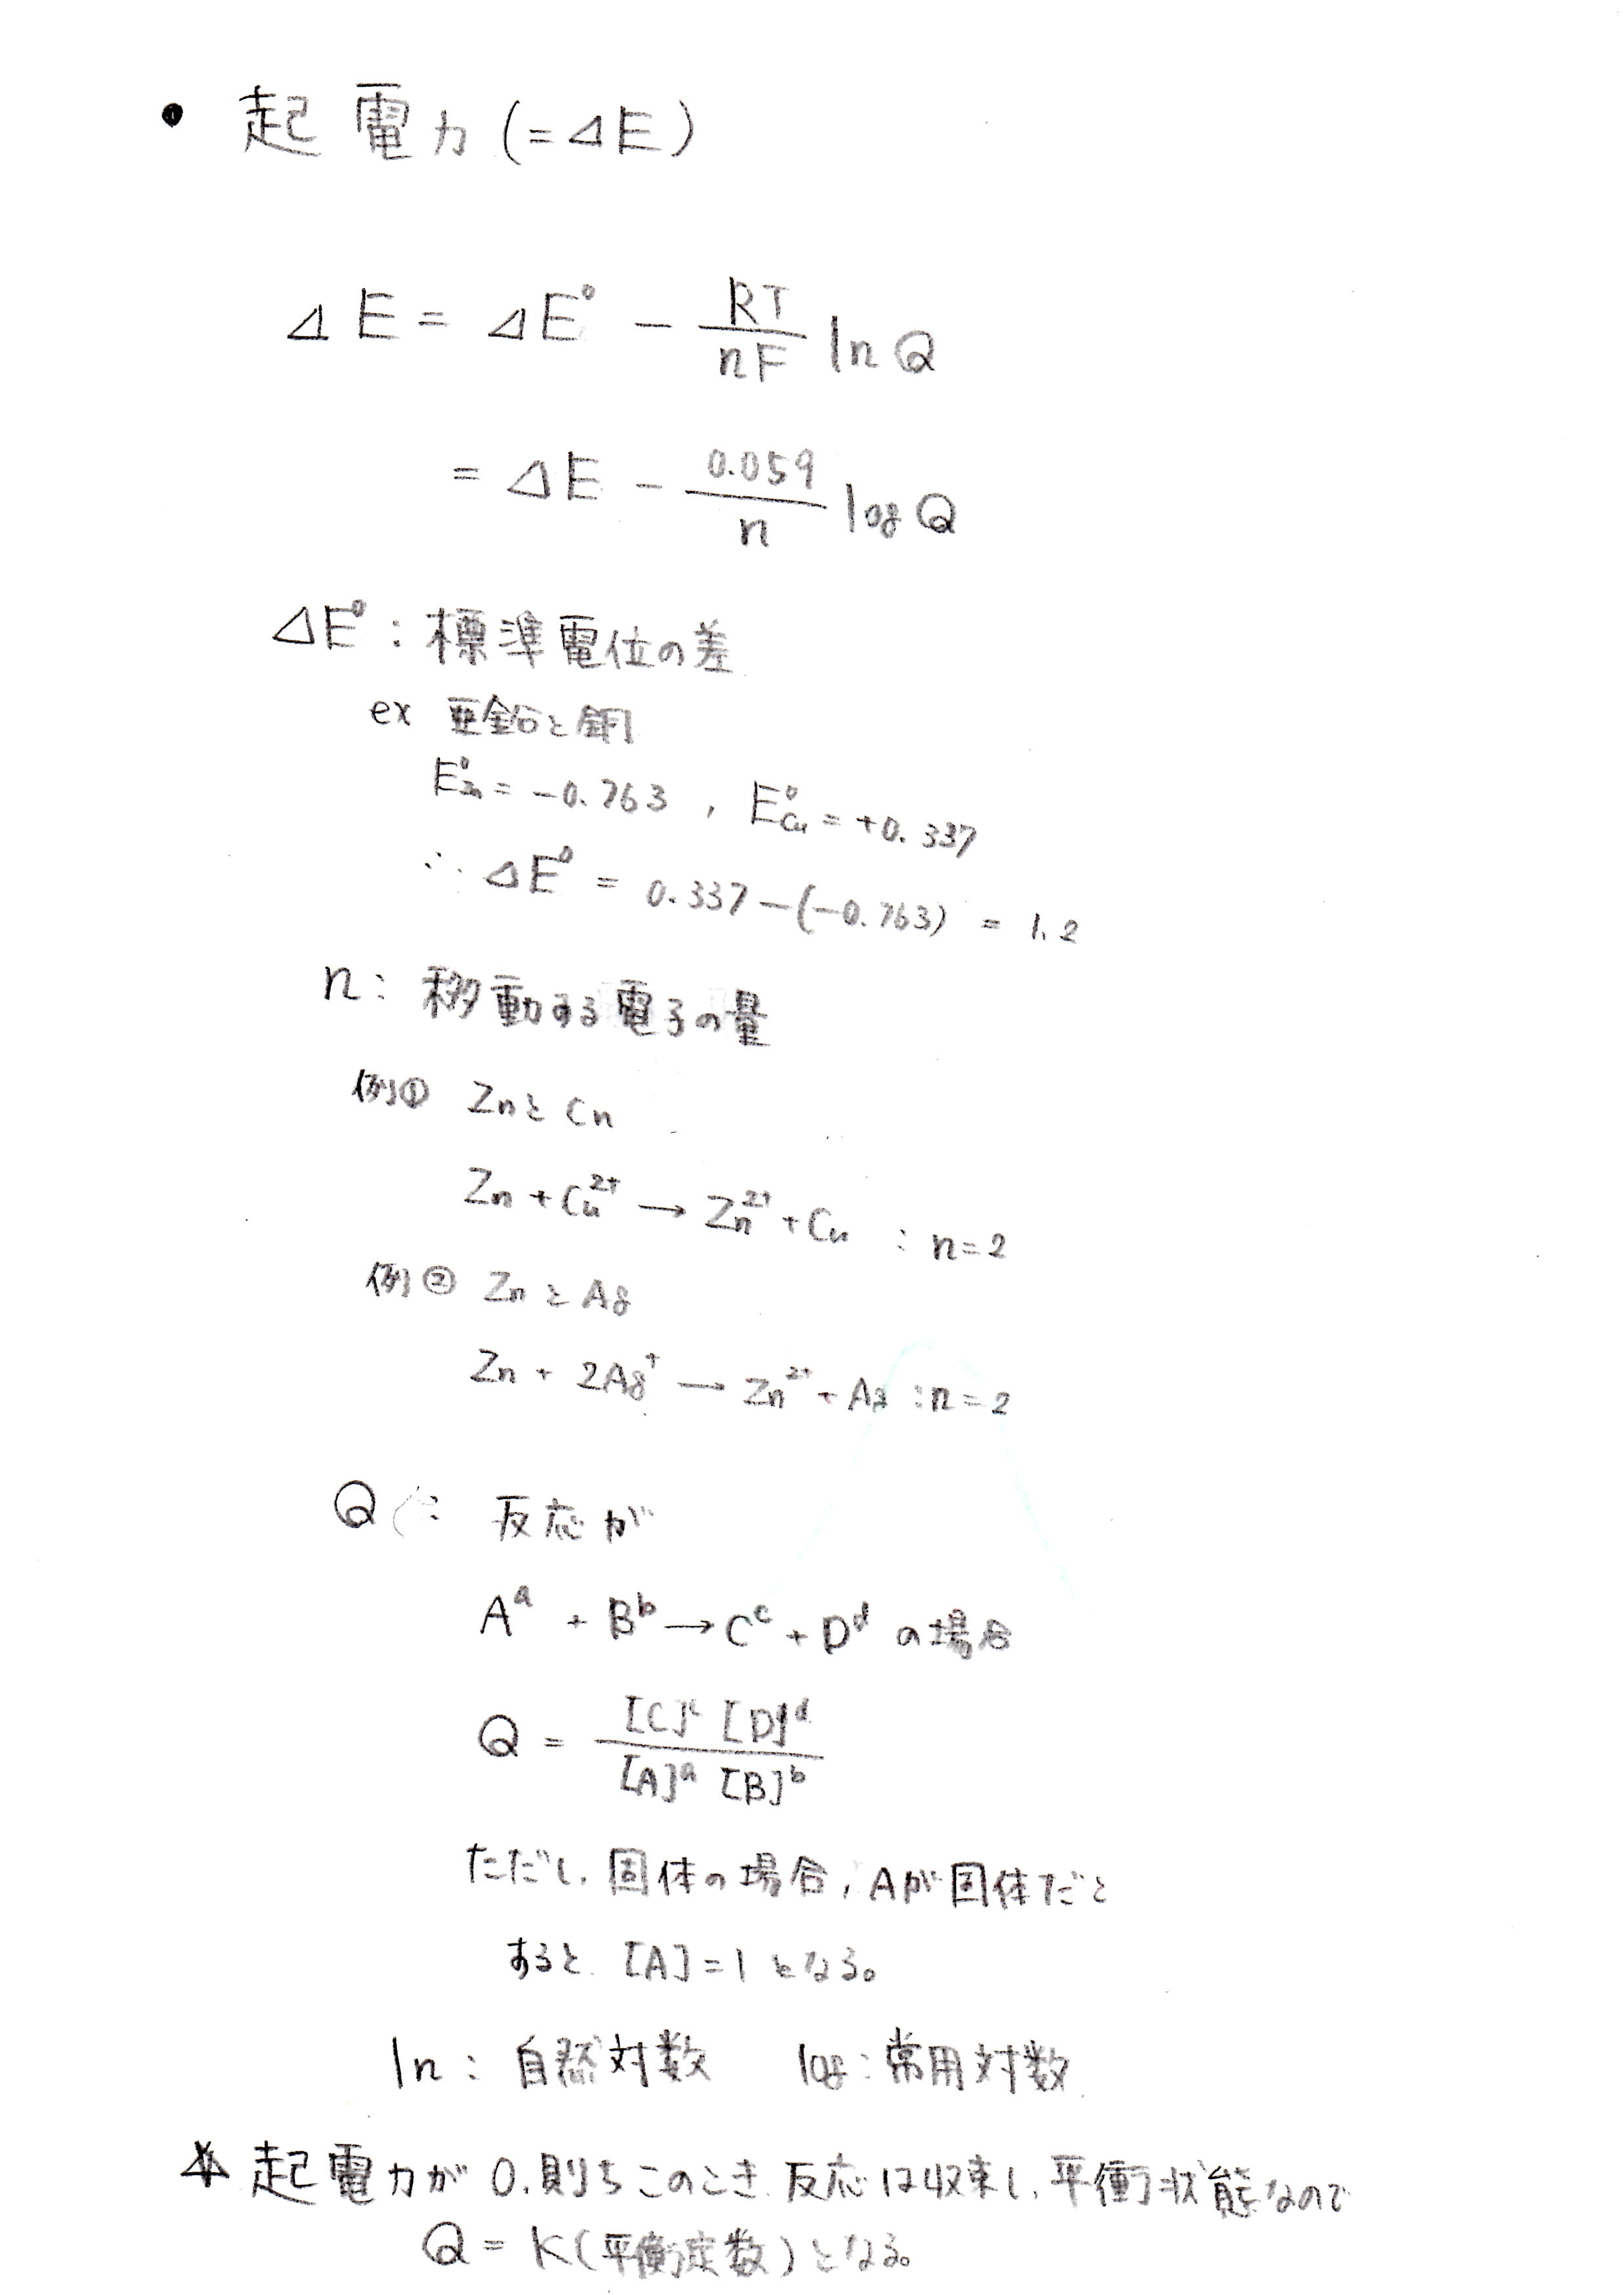 • 起電力(=ΔE)
ΔE = ΔE⁰ - RT/nF ln Q
= ΔE - 0.059/n log Q
ΔE⁰ : 標準電位の差
ex 亜鉛と銅
E⁰Zn = -0.763 , E⁰Cu = +0.337
∴ ΔE⁰ = 0.337-(-0.763) = 1.2
n: 移動する電子の量
例① ZnとCn
Zn + Cu²⁺ → Zn²⁺ + Cu : n=2
例② ZnとAg
Zn + 2Ag⁺ → Zn²⁺ + Ag : n=2
Q : 反応が
Aᵃ + Bᵇ → Cᶜ + Dᵈ の場合
Q = [C]ᶜ [D]ᵈ / [A]ᵃ [B]ᵇ
ただし、固体の場合, Aが固体だと
すると [A]=1 となる。
ln : 自然対数 log : 常用対数
☆ 起電力が 0, 則ちこのとき 反応は収束し、平衡状態なので
Q = K(平衡定数)となる。